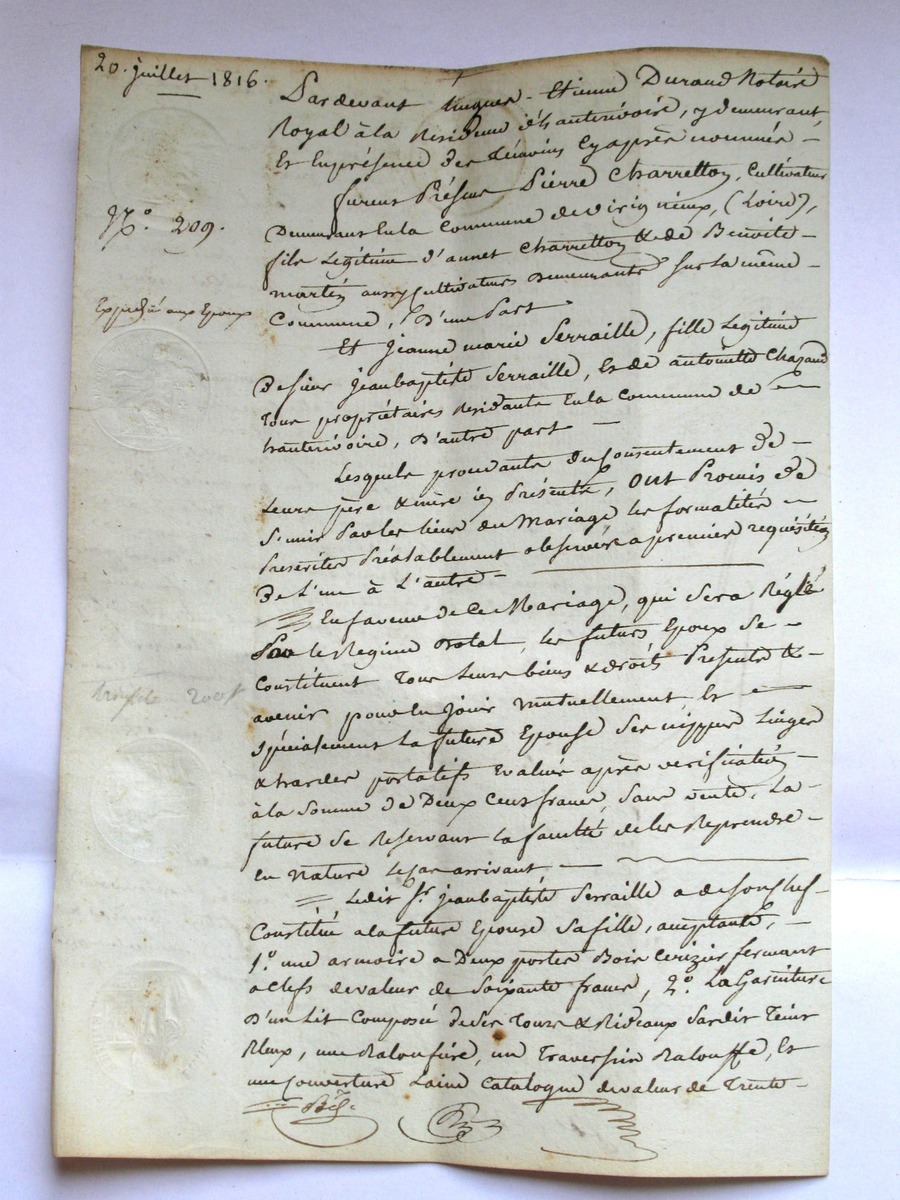 20. juillet 1816.
Pardevant hugues-Etienne Durand Notaire
Royal à la Résidence d'hauterivoire, y demeurant,
Et En présence des témoins Cy après nommés -
furent Présens Pierre Charretton, Cultivateur
N.º 209.
Demeurant En la Commune de viriginieux, (Loire),
fils Légitime d'annet Charretton & de Benoite
martin aussy Cultivateurs Demeurants sur la même -
Expédié aux Epoux
Commune, D'une Part
Et Jeanne marie Serraille, fille Legitime
De sieur jean baptiste Serraille, Et de antoinette Chazaud
Tous propriétaires Résidants En la Commune de
hauterivoire, D'autre part -
Lesquels procedants du Consentement de -
Leurs père & mère icy Présents, Ont Promis de
S'unir Par les liens du Mariage les formalités -
Prescrites Préalablement observées a première requisition
De L'un à L'autre -
En faveur de Ce Mariage, qui Sera Réglé
Par le Regime Dotal, les futurs Epoux Se -
Constituent Tous Leurs biens & droits Presents &
avenir pour En Jouir mutuellement Et -
Spécialement La future Epouse Ses nippes Linges
& hardes portatifs Evalués après verification
à la Somme de Deux Cent francs, Sans vente, La
future Se Reservant la faculté de les Reprendre -
En Nature le cas arrivant -
Ledit Sr. jean baptiste Serraille a de Son Chef
Constitué a la future Epouse Sa fille, acceptante, -
1.º une armoire a Deux portes Bois Cerizier fermant
a Clefs de valeur de Soixante francs, 2.º La Garniture
D'un Lit Composé de Ses Tours & Rideaux Teint
Bleux, une Baloufière, un Traversin Balouffe, Et
une Couverture Laine Catalogne de valeur de Trente -